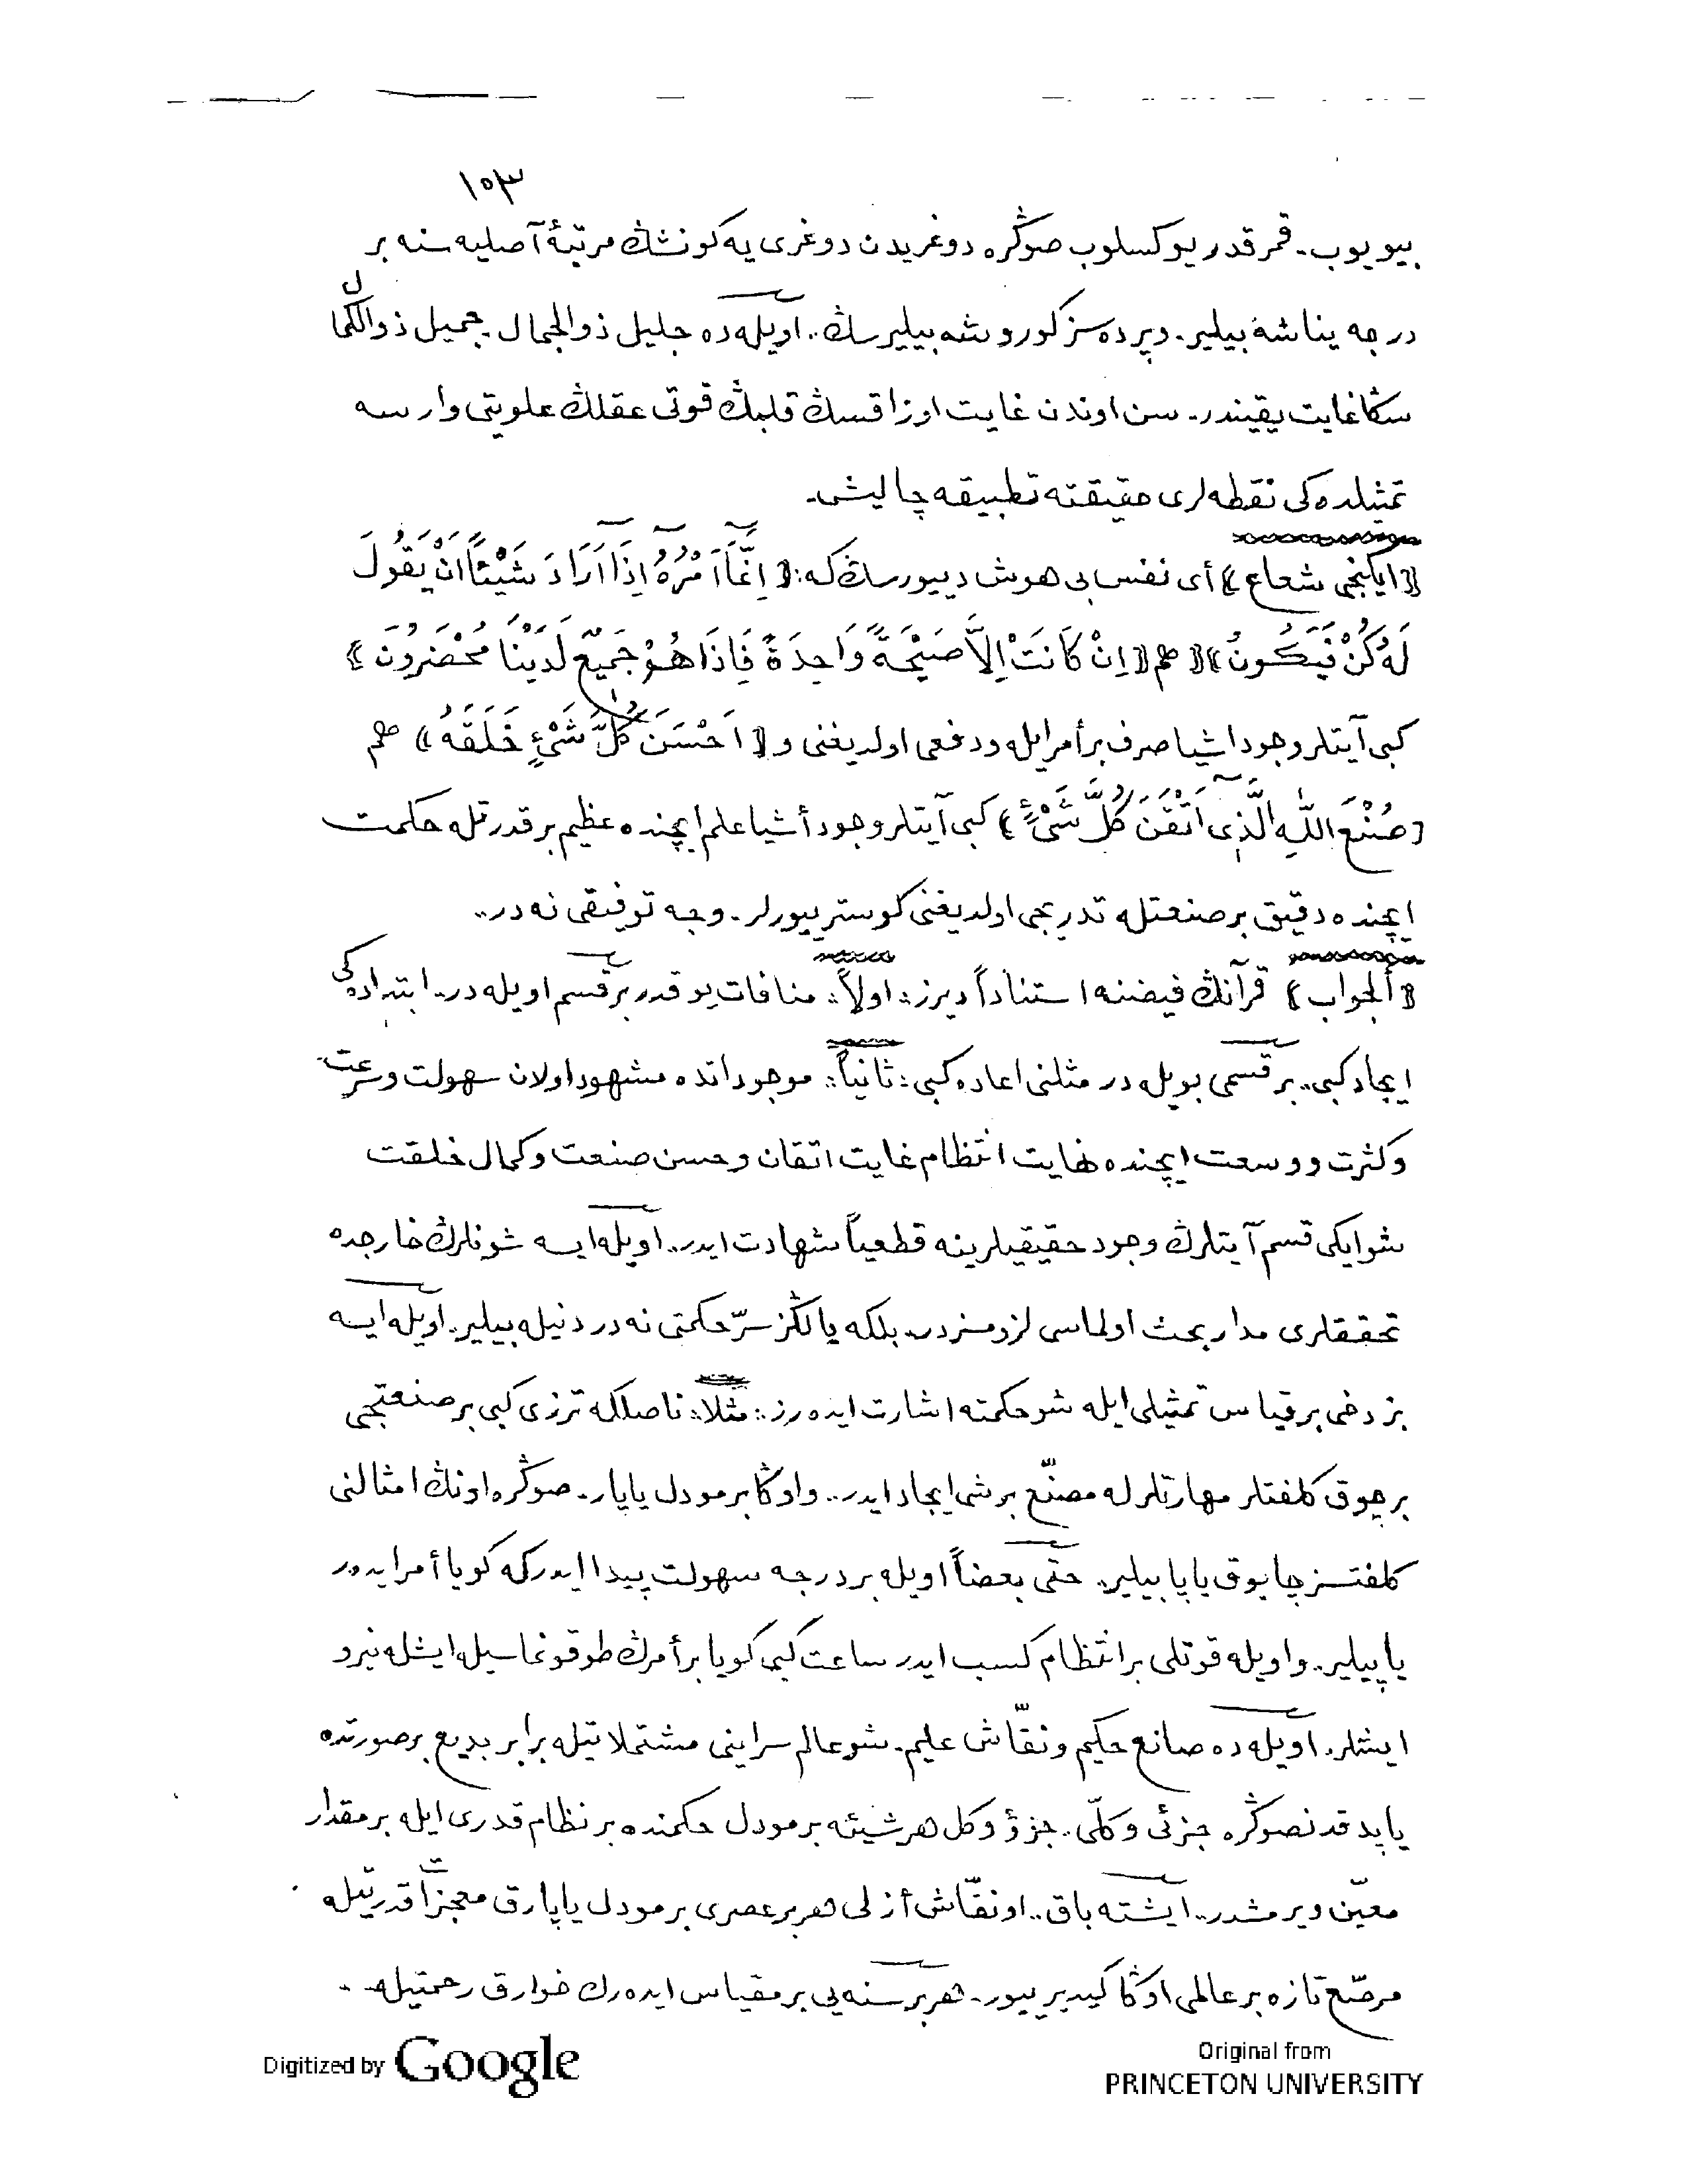 ١٥٣
بيويوب. قمر قدر يوكسلوب صوڭره دوغريدن دوغرى يه كونشڭ مرتبۀ آصليه سنه بر
درجه يناشه بيلير. وپرده سز كوروشه بيليرسڭ.. اويله ده جليل ذوالجمال جميل ذوالكمال
سڭا غايت يقيندر. سن اوندن غايت اوزاقسڭ قلبڭ قوتى عقلڭ علويتى وارسه
تمثيلده كى نقطه لرى حقيقته تطبيقه چاليش.
﴿ايكنجى شعاع﴾ أى نفس بى هوش ديييورسڭ كه: ﴿اِنَّمَٓا اَمْرُهُٓ اِذَٓا اَرَادَ شَيْئًا اَنْ يَقُولَ
لَهُ كُنْ فَيَكُونُ﴾ ﴿هم ﴿اِنْ كَانَتْ اِلَّا صَيْحَةً وَاحِدَةً فَاِذَا هُمْ جَمِيعٌ لَدَيْنَا مُحْضَرُونَ﴾
كبى آيتلر وجود اشيا صرف بر أمر ايله ودفعى اولديغنى و ﴿اَحْسَنَ كُلَّ شَىْءٍ خَلَقَهُ﴾ هم
﴿صُنْعَ اللّٰهِ الَّذِٓى اَتْقَنَ كُلَّ شَىْءٍ﴾ كبى آيتلر وجود أشيا علم ايچنده عظيم بر قدرتله حكمت
ايچنده دقيق بر صنعتله تدريجى اولديغنى كوستريييورلر. وجه توفيقى نه در..
﴿ألجواب﴾ قرآنڭ فيضنه استناداً ديرز: اولاً: منافات يوقدر بر قسم اويله در. ابتداده كى
ايجاد كبى.. بر قسمى بويله در مثلنى اعاده كبى: ثانياً: موجوداتده مشهود اولان سهولت وسرعت
وكثرت ووسعت ايچنده نهايت انتظام غايت اتقان وحسن صنعت وكمال خلقت
شو ايكى قسم آيتلرڭ وجود حقيقيلرينه قطعياً شهادت ايدر.. اويله ايسه شونلرڭ خارجده
تحققلرى مدار بحث اولماسى لزومسزدر. بلكه يالڭز سرّ حكمتى نه در دنيله بيلير. اويله ايسه
بز دخى بر قياس تمثيلى ايله شو حكمته اشارت ايده رز: مثلا: ناصلكه ترزى كبى بر صنعتجى
بر چوق كلفتلر مهارتلرله مصنّع بر شى ايجاد ايدر.. واوڭا بر مودل ياپار. صوڭره اونڭ امثالنى
كلفتسز چابوق ياپا بيلير. حتّى بعضاً اويله بر درجه سهولت پيدا ايدركه كويا أمر ايدر
ياپيلير.. واويله قوتلى بر انتظام كسب ايدر ساعت كبى كويا بر أمرڭ طوقونماسيله ايشله نيرو
ايشلر. اويله ده صانع حكيم ونقّاش عليم. شو عالم سراينى مشتملاتيله برابر بديع بر صورتده
ياپدقدنصوڭره جزئى وكلّى. جزؤ وكل هر شيئه بر مودل حكمنده بر نظام قدرى ايله بر مقدار
معيّن ويرمشدر.. ايشته باق.. او نقّاش أزلى هر بر عصرى بر مودل ياپارق معجزات قدرتيله
مرصّع تازه بر عالمى اوڭا كيديرييور. هر بر سنه يى بر مقياس ايده رك خوارق رحمتيله
Digitized by Google
Original from
PRINCETON UNIVERSITY